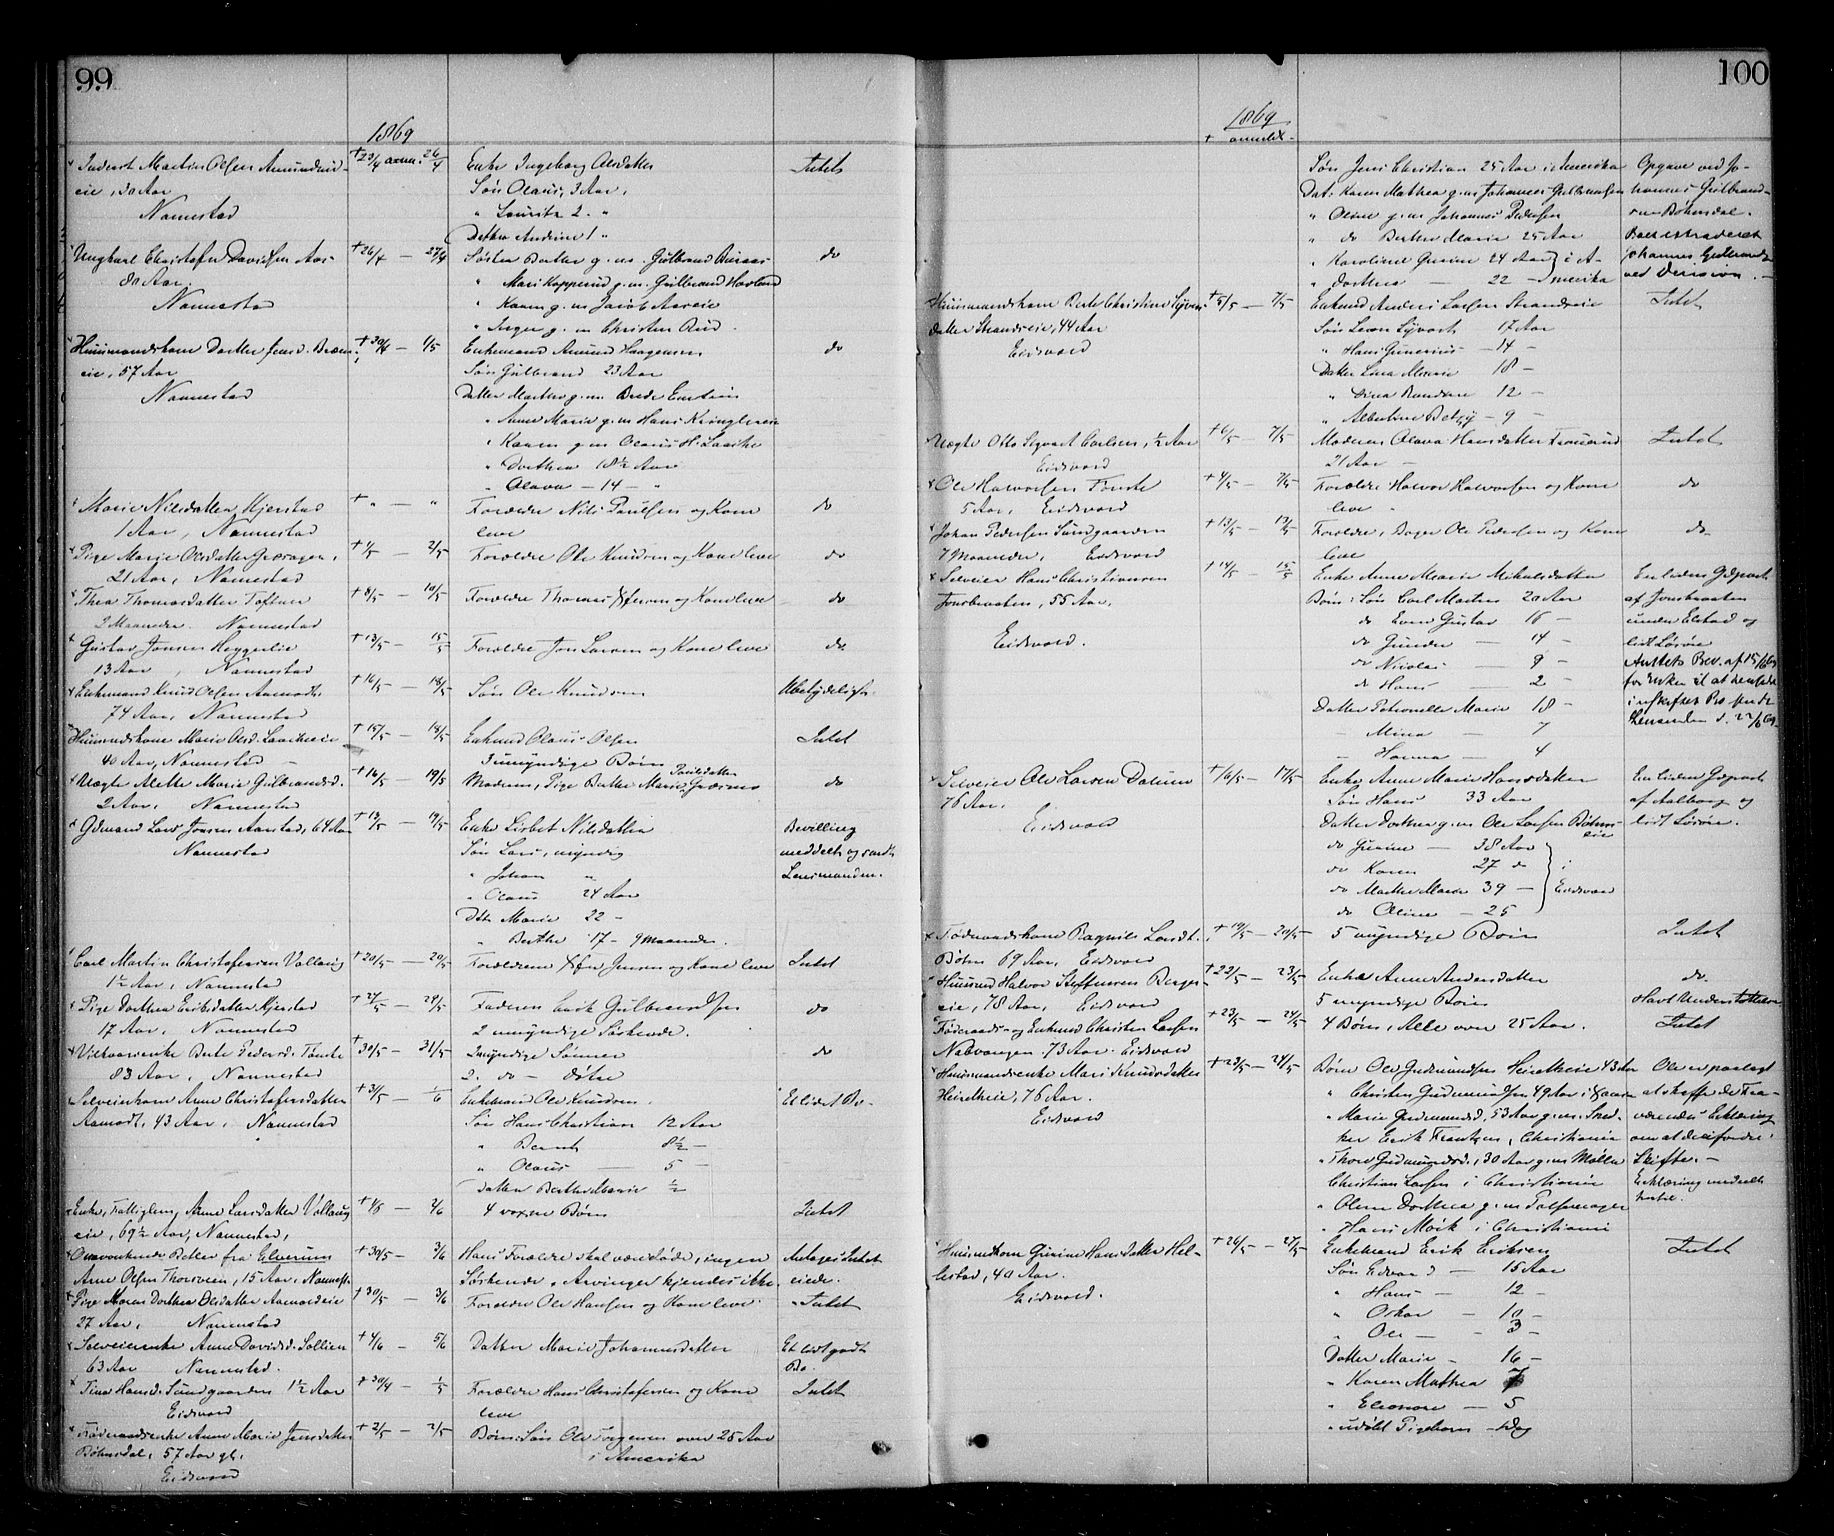 99
1869
Inderst Martin Olsen Amundrud-
eie, 30 Aar
Nannestad
+ 23/4 anm. 26/4
Enke Ingeborg Olsdatter
Søn Olaus, 3 Aar,
" Lauritz 2 "
Datter Andrine 1 "
Intet
Ungkarl Christofer Davidsen Aas-
80 Aar
Nannestad
+ 26/4 — 27/4
Søster Berthe g.m. Gulbrand
" Mari Kopperud g.m. Gulbrand Hovland
" Karen g.m. Jacob Aaseie
" Inger g.m. Christen Rud
do
Huusmandskone Dorthe Jensd.
eie, 57 Aar
Nannestad
+ 30/4 — 1/5
Enkemand Amund Haagensen
Søn Gulbrand 23 Aar
Datter Marthe g.m. Brede
" Anne Marie g.m. Hans Kringlereie
" Karen g.m. Olaus H.
" Dorthea 18½ Aar
" Olava — 14 — "
do
Marie Nilsdatter Hjerstad
1 Aar, Nannestad
+ " — "
Forældre Nils Paulsen og Kone
leve
do
Pige Marie Olsdatter
21 Aar, Nannestad
+ 1/5 — 2/5
Forældre Ole Knudsen og Kone leve
do
Thea Thomasdatter Toftner
2 Maaneder. Nannestad
+ 8/5 — 10/5
Forældre Thomas og Kone leve
do
Gustav Jonsen Heggerlie
13 Aar, Nannestad
+ 13/5 — 15/5
Forældre Jon Larsen og Kone leve
do
Enkemand Knud Olsen Aamodt
74 Aar, Nannestad
+ 16/5 — 18/5
Søn Ole Knudsen
Ubetydeligt
Huusmdskone Marie Olsd.
40 Aar, Nannestad
+ 15/5 — 18/5
Enkmd Olaus Olsen
Umyndige Børn
Intet
Uægte Alette Marie Gulbrandsd.
2 Aar, Nannestad
+ 16/5 — 19/5
Moderen, Pige Berthe Marie Paulsdatter
do
Gdmand Lars Jonsen Aarstad, 64 Aar
Nannestad
+ 13/5 — 19/5
Enke Lisbet Nilsdatter
Søn Lars, myndig
" Johan "
" Olaus 24 Aar
Dtr Marie 22 —
" Berthe 17 — 9 Maaneder.
Bevilling
meddelt og sendt
Lensmanden.
Carl Martin Christofersen Vollaug
1½ Aar, Nannestad
+ 20/5 — 20/5
Forældrene Jensen og Kone leve
Intet
Pige Dorthea Eriksdatter Hjerstad
17 Aar, Nannestad
+ 27/5 — 28/5
Faderen Erik Gulbrandsen
2 umyndige Søskende.
do
Vilkaarsenke Berte Pedersd. Tomte
83 Aar, Nannestad
+ 30/5 — 31/5
2 myndige Sønner
2 do — Døtre
do
Selveierkone Anne Christofersdatter
Aamodt, 43 Aar, Nannestad
+ 31/5 — 1/6
Enkemand Ole Knudsen.
Søn Hans Christian 12 Aar
" Bernt 8½ —
" Olaus — 5 —
Datter Berthe Marie ½
Et lidet Bo.
Enke, Fattiglem, Anne Larsdatter Vollaug
eie, 69½ Aar, Nannestad,
+ 1/6 — 2/6
4 voxne Børn
Intet
Omvankende Betler fra Elverum
Arne Olsen Thorsveen, 15 Aar, Nannest.
+ 30/5 — 3/6
Hans Forældre skal være døde, ingen
Søskende. Arvinger kjendes ikke
Antages Intet
eiede.
Pige Maren Dorthea Olsdatter Aamodteie
27 Aar, Nannestad
+ 30/5 — 3/6
Forældre Ole Hansen og Kone leve
Intet
Selveierenke Anne Davidsd. Sollien
63 Aar Nannestad.
+ 4/6 — 5/6
Datter Marie Johannesdatter
Et lidet godt
Bo.
Tina Hansd. Sundgaarden 1½ Aar
Eidsvold
+ 30/4 — 1/5
Forældre Hans Christofersen og Kone
leve
Intet
Føderaadsenke Anne Marie Jensdatter
Bøhnsdal, 57 Aar gl.
Eidsvold
+ 2/5 — 2/5
Børn: Søn Ole Torgersen over 25 Aar
i Amerika
100
1869
+ anmeldt —
Søn Jens Christian 25 Aar i Amerika
Dat. Karen Mathea g.m. Johannes Gulbrandsen
" Oline g.m. Johannes Pedersen
" do Berthe Marie 25 Aar
" Karoline Gurine 24 Aar } i A-
" Dorthea — 22 — } merika
Opgave ved Jo-
hannes Gulbrand-
sen Bøhnsdal.
Boet extraderet
Johannes Gulbrands
ved Decision.
Huusmandskone Berte Christine Syvers-
datter Strandseie, 44 Aar
Eidsvold
+ 5/5 — 7/5
Enkemd Anders Larsen Strandseie
Søn Sigvart 17 Aar
" Hans Gunerius — 14 —
Datter Lina Marie 18 —
" Dina Randine 12 —
" Albertine Betzy — 9 —
Intet
Uægte Otto Sigvart Carlsen, ½ Aar
Eidsvold
+ 6/5 — 7/5
Moderen Olava Hansdatter
21 Aar —
Intet
Ole Halvorsen Tomte
5 Aar, Eidsvold
+ 4/5 — 7/5
Forældre Halvor Halvorsen og Kone
leve
do
Johan Pedersen Sundgaarden
7 Maaneder, Eidsvold
+ 13/5 — 13/5
Forældre, Bager Ole Pedersen og Kone
leve
do
Selveier Hans Christiansen
Jonsbraaten, 55 Aar,
Eidsvold.
+ 14/5 — 15/5
Enke Anne Marie Mikkelsdatter
Børn: Søn Carl Martin 20 Aar
do Gustav 16 —
do Gunder — 14 —
do Nicolai — 9 —
do Hans — 2 —
Datter Petronelle Marie 18 —
— Mina — 7
— Hanna — 4
En liden Gdpart
af Jonsbraaten
under Elstad og
lidt Løsøre
Amtets Bev. af 15/6 69
for Enken til at hensidde
i uskiftet Bo sendt
Lensmanden d. 22/6 69.
Selveier Ole Larsen Dalum
76 Aar.
Eidsvold
+ 16/5 — 17/5
Enke Anne Marie Hansdatter
Søn Hans 33 Aar
Datter Dorthea g.m. Ole Larsen Bøhns-
eie
do Gurine — 38 Aar
do Karen 27 do
do Marthe Marie 39 —
do Oline — 25
} i
Eidsvold
En liden Gdpart
af Aalborg og
lidt Løsøre.
Føderaadskone Ragnild Larsdt.
Bøhn 69 Aar, Eidsvold
+ 19/5 — 20/5
5 myndige Børn
Intet
Huusmd Halvor Steffensen Berger-
eie, 78 Aar, Eidsvold
+ 22/5 — 23/5
Enke Anne Andersdatter
5 myndige Børn
do
Havt Understøttelse
Føderaads- og Enkemd Christen Larsen
Nabvangen 73 Aar. Eidsvold
+ 23/5 — 24/5
4 Børn, Alle over 25 Aar.
Intet
Huusmandsenke Mari Knudsdatter
Heietheie, 76 Aar.
Eidsvold
+ 23/5 — 24/5
Børn Ole Gudmundsen Heietheie 43 Aar
" Christen Gudmundsen 49 Aar i
" Marie Gudmundsd. 53 Aar g.m. Sned-
ker Erik Frantzen, Christiania
" Thore Gudmundsd., 30 Aar g.m. Møller
Christian Larsen i Christiania
" Olene Dorthea g.m.
Hans Moik i Christiania
Ole er paalagt
at skaffe de Fra-
værendes Erklæring
om at de ei fordre
Skifte. —
Erklæring meddelt
Huusmdkone Gurine Hansdatter Hel-
lestad, 40 Aar.
Eidsvold.
+ 26/5 — 27/5
Enkemand Erik Eriksen
Søn Edvard — 15 Aar
" Hans — 12 —
" Oskar — 10 —
" Ole — 3 —
Datter Marie — 16 —
" Karen Mathea 7
" Eleonore — 5
" udøbt Pigebarn — 1 Dag
Intet